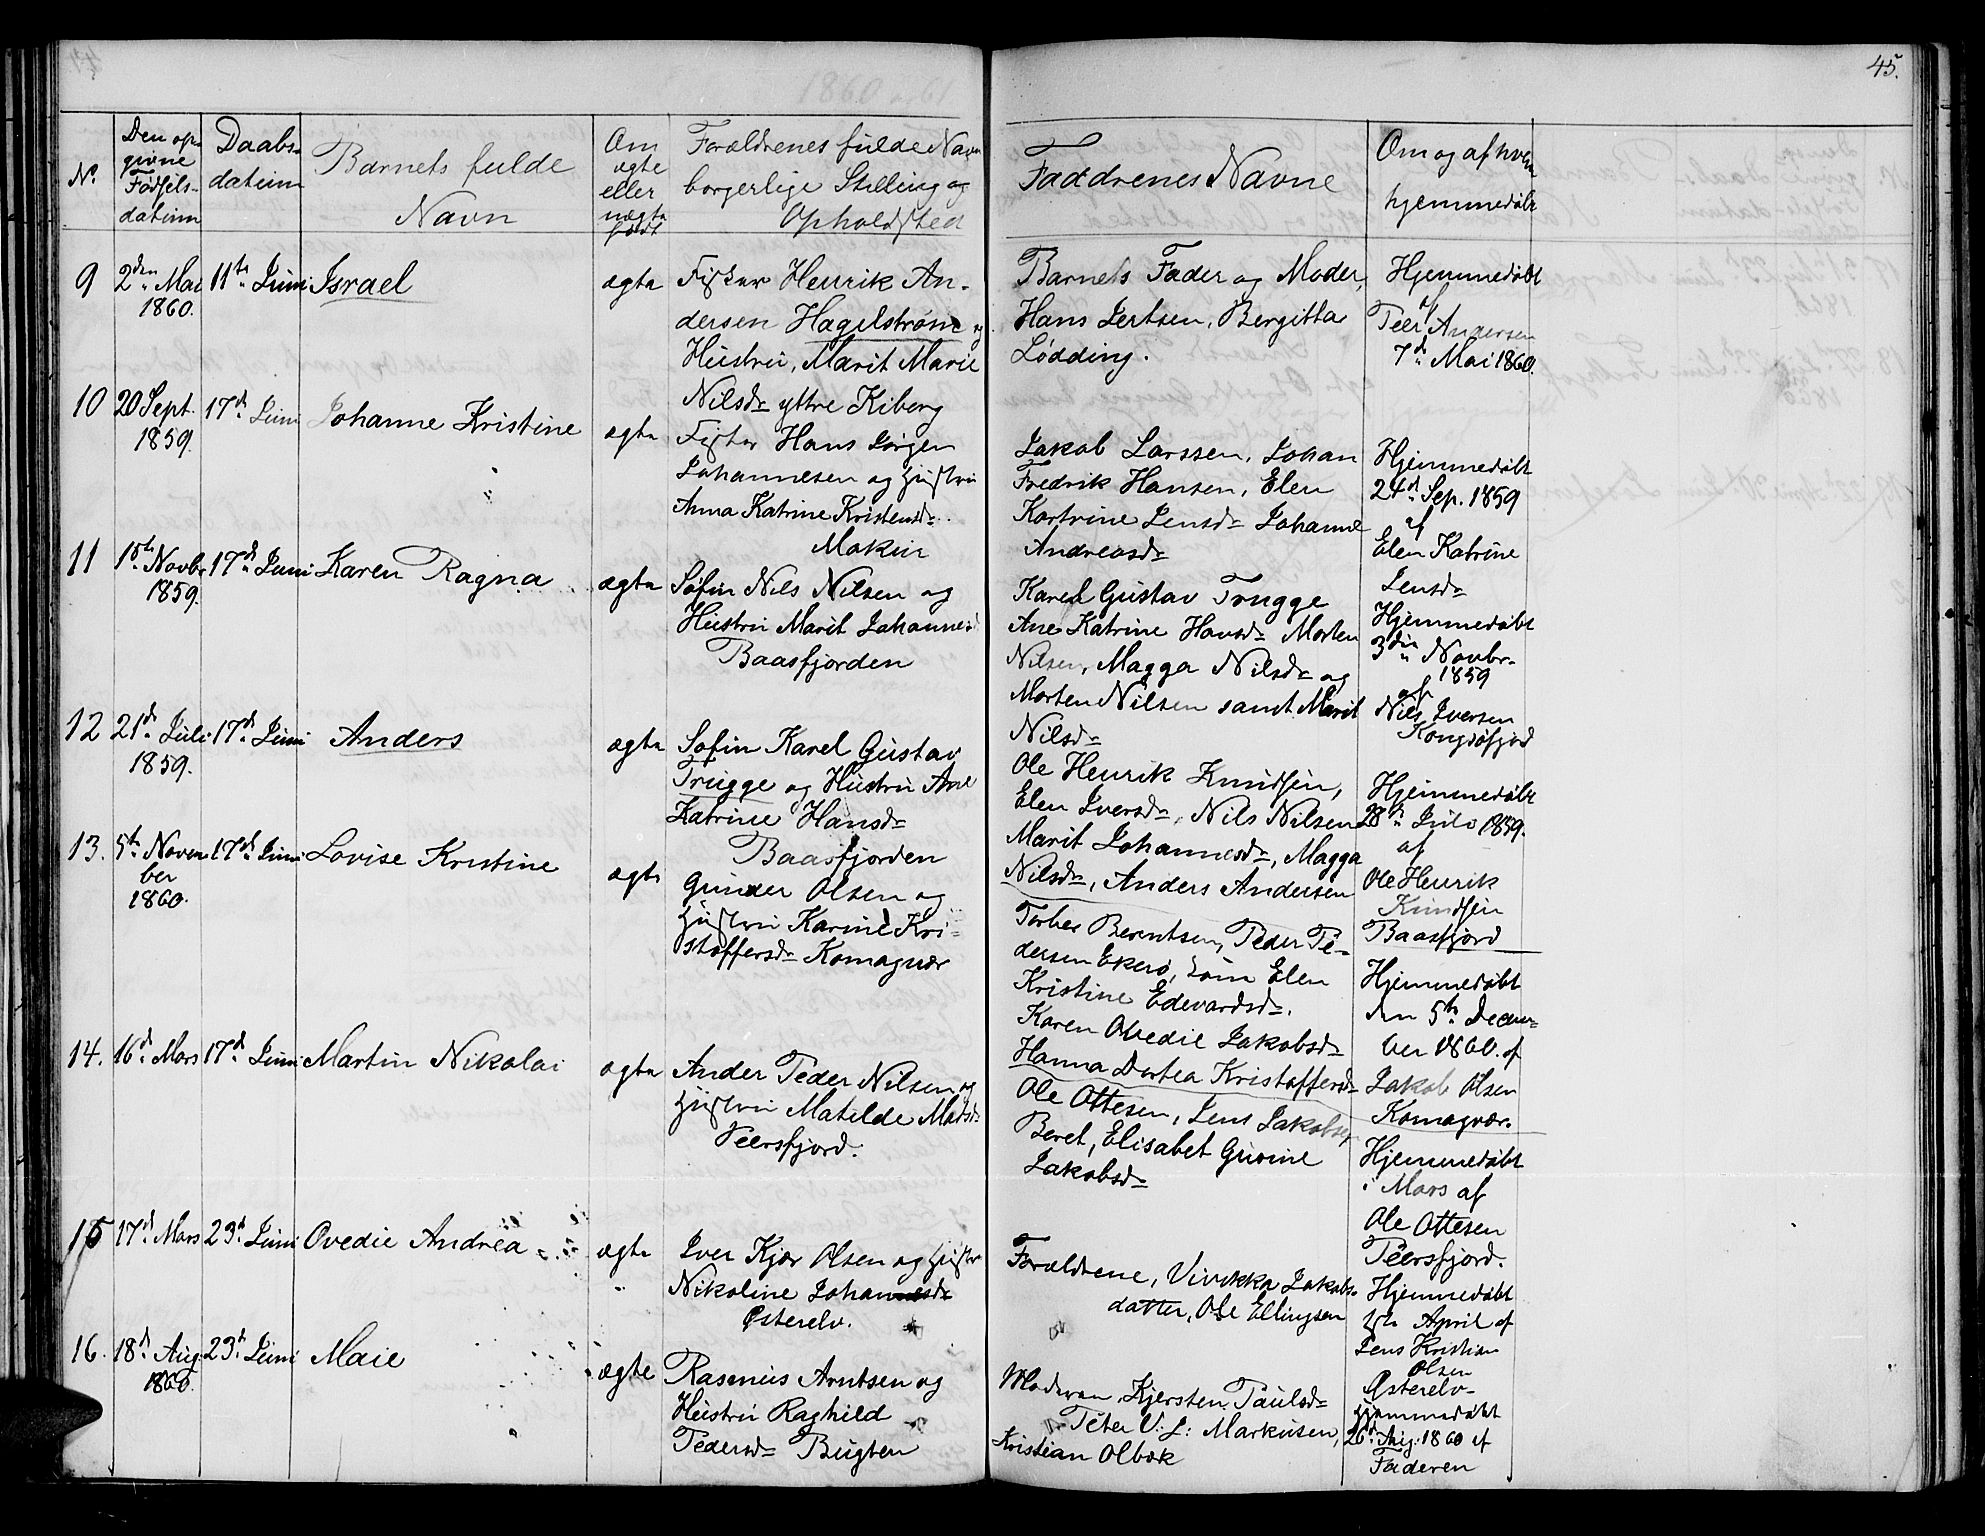 45.
1860 og 61
No.
Den op-
givne
Fødsels-
datum
Daabs-
datum
Barnets fulde
Navn
Om
ægte
eller
uægte
født
Forældrenes fulde Navn
borgerlige Stilling og
Opholdsted
Faddrenes Navne
Om og af hvem
hjemmedøbt
9
2den Mai
1860.
11te Juni
Israel
ægte
Fisker Henrik An-
dersen Hagelstrøm og
Hustru, Marit Marie
Nilsdr yttre Kiberg
Barnets Fader og Moder,
Hans Jertsen, Bergitta
Lødding.
Hjemmedøbt
af
Peer Andersen
7de Mai 1860.
10
20 Sept.
1859.
17d Juni
Johanne Kristine
ægte
Fisker Hans Jørgen
Johannesen og Hustru
Anna Katrine Kristensdr.
Makur
Jakob Larssen, Johan
Fredrik Hansen, Elen
Kartrine Jensdr Johanne
Andreasdr
Hjemmedøbt
24d Sep. 1859
af
Elen Katrine
Jensdr
11
1ste Novbr
1859.
17d Juni
Karen Ragna
ægte
Søfin Nils Nilsen og
Hustru Marit Johannesd
Baasfjorden
Karel Gustav Trugge
Ane Katrine Hansdr Morten
Nilsen, Magga Nilsdr og
Morten Nilsen samt Marit
Nilsdr
Hjemmedøbt
3die Novbr.
1859
af
Nils Iversen
Kongsøfjord
12
21d Juli
1859.
17d Juni
Anders
ægte
Søfin Karel Gustav
Trugge og Hustru Ane
Katrine Hansdr
Baasfjorden
Ole Henrik Knudsen,
Elen Iversdr, Nils Nilsen
Marit Johannesdr, Magga
Nilsdr, Anders Andersen
Hjemmedøbt
28d Juli 1859.
af
Ole Henrik
Knudsen
Baasfjord
13.
5te Novem
ber
1860.
17d Juni
Lovise Kristine
ægte
Gunder Olsen og
Hustru Karine Kri-
stoffersdr Komagvær
Torber Berntsen, Peder Pe-
dersen Ekerø, Elen
Kristine Edevardsdr.
Karen Ovedie Jakobsdr
Hanna Dortea Kristoffersdr
Hjemmedøbt
den 5te Decem-
ber 1860. af
Jakob Olsen
Komagvær.
14.
16d Mars
17d Juni
Martin Nikolai
ægte
Ander Peder Nilsen og
Hustru Matilde Madsdr
Peersfjord.
Ole Ottesen, Jens Jakobsen
Beret, Elisabet Gurine
Jakobsdr
Hjemmedøbt
i Mars af
Ole Ottesen
Peersfjord.
15
17d Mars
23d Juni
Ovedie Andrea
ægte
Iver Kjær Olsen og Hustru
Nikoline Johannesdr
Østerelv.
Forældrene, Vivikka Jakobs-
datter, Ole Ellingsen
Hjemmedøbt
April af
Jens Kristian
Olsen
Østerelv
16.
18d Aug.
1860.
23d Juni
Maie
ægte
Rasmus Arntsen og
Hustru Raghild
Pedersdr Bugten
Moderen, Kjersten Paulsdr
Peter V. L: Markusen,
Kristian Olbek
Hjemmedøbt
26d Aug: 1860 af
Faderen